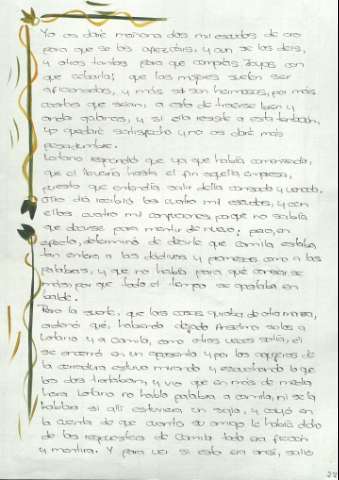 Yo os daré mañana dos mil escudos de oro
para que se los ofrezcáis, y aun se los deis,
y otros tantos para que compréis joyas con
que cebarla; que las mujeres suelen ser
aficionadas, y más si son hermosas, por más
castas que sean, a esto de traerse bien y
andar galanas; y si ella resiste a esta tentación,
yo quedaré satisfecho y no os daré más
pesadumbre.
Lotario respondió que ya que había comenzado,
que él llevaría hasta el fin aquella empresa,
puesto que entendía salir della cansado y vencido.
Otro día recibió los cuatro mil escudos, y con
ellos cuatro mil confusiones, porque no sabía
que decirse para mentir de nuevo; pero, en
efecto, determinó de decirle que Camila estaba
tan entera a las dádivas y promesas como a las
palabras, y que no había para qué cansarse
más, porque todo el tiempo se gastaba en
balde.
Pero la suerte, que las cosas guiaba de otra manera,
ordenó que, habiendo dejado Anselmo solos a
Lotario y a Camila, como otras veces solía, él
se encerró en un aposento y por los agujeros de
la cerradura estuvo mirando y escuchando lo que
los dos trataban, y vio que en más de media
hora Lotario no habló palabra a Camila, ni se la
hablara si allí estuviera un siglo, y cayó en
la cuenta de que cuanto su amigo le había dicho
de las respuestas de Camila todo era ficción
y mentira. Y para ver si esto era ansí, salió